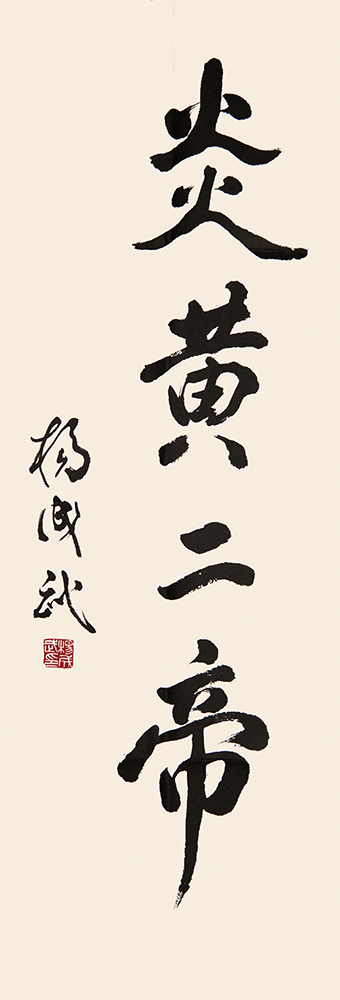 炎黄二帝
杨成武
杨成武印